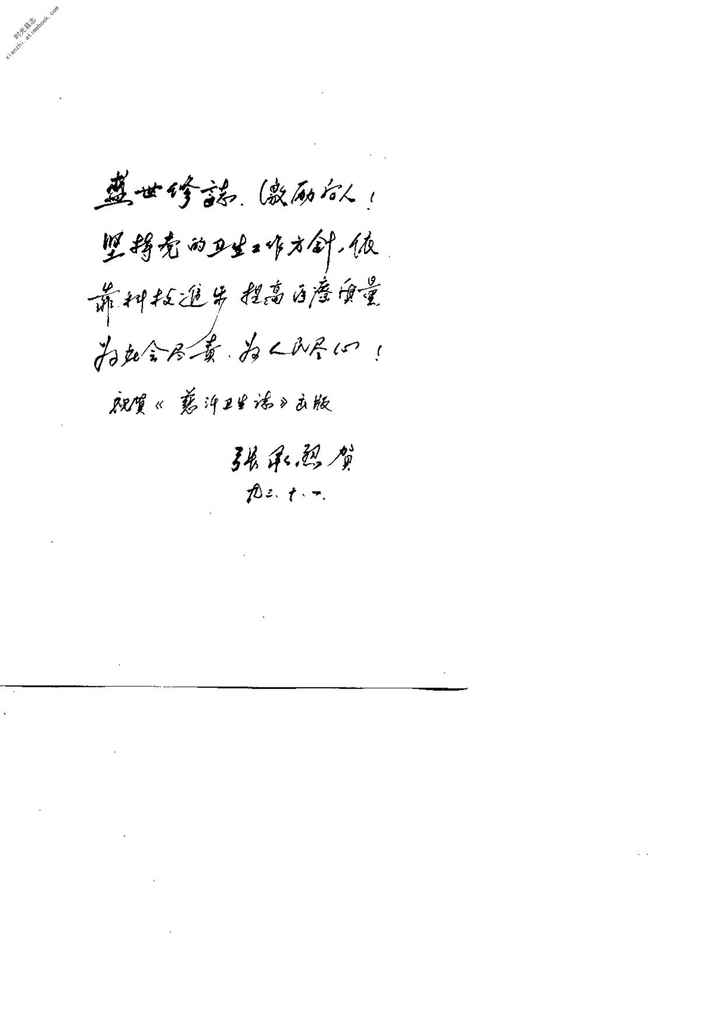 时光县志
xianzhi.atimebook.com
盛世修誌、激励后人！
坚持党的卫生工作方针，依
靠科技進步 提高医療质量
为社会负责、为人民尽心！
祝贺《慈 卫生誌》出版
張承烈 贺
九三.十.一.